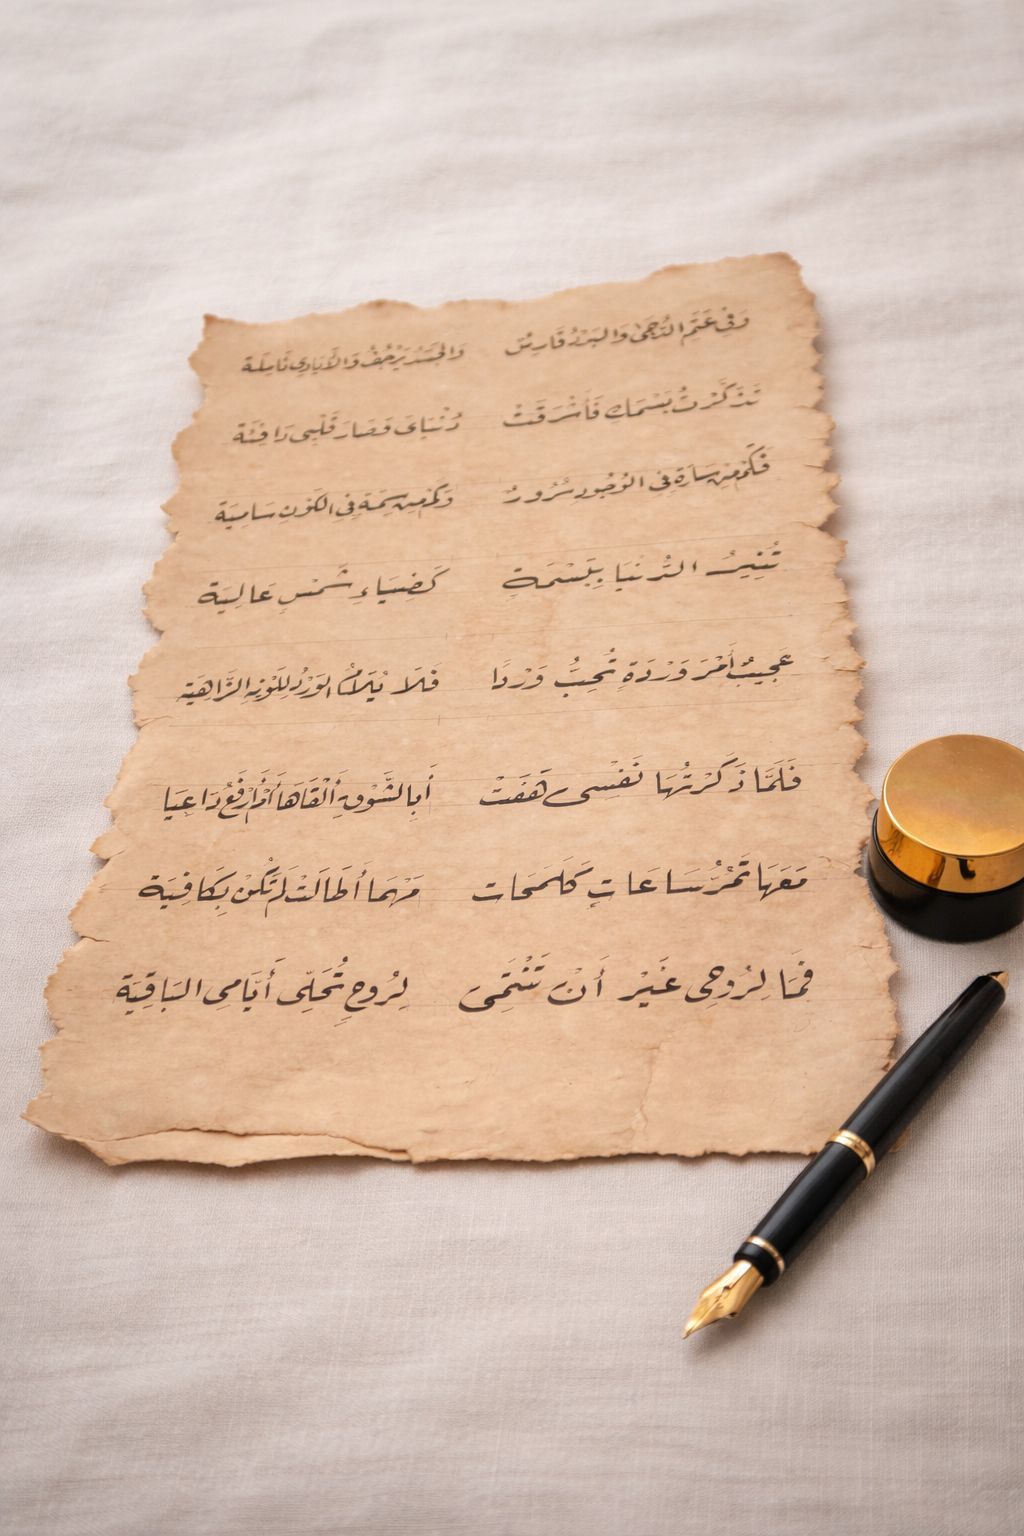 وَفِي عَتَمِ الدُّجَى وَالبَرْدُ قَارِسٌ وَالجَسَدُ يَرْجُفُ وَالأَيَادِي نَاسِلَة
تَذَكَّرْتُ بَسْمَاتِكِ فَأَشْرَقَتْ دُنْيَايَ فَصَارَ قَلْبِي دَافِئَة
فَكَمْ مِنْ سَارَةٍ فِي الوُجُودِ سُرُورٌ وَكَمْ مِنْ سِمَةٍ فِي الكَوْنِ سَامِيَة
تُنِيرُ الدُّنْيَا بِبَسْمَةٍ كَضِيَاءِ شَمْسٍ عَالِيَة
عَجِيبٌ أَمْرَ وَرْدَةٍ تُحِبُّ وَرْدًا فَلَا يُلَامُ الوَرْدُ لِلَوْنِهِ الزَّاهِيَة
فَلَمَّا ذَكَرْتُهَا نَفْسِي هَفَتْ أَبِالشَّوْقِ أَلْقَاهَا أَمْ أَرْفَعُ دَاعِيَا
مَعَهَا تَمُرُّ سَاعَاتٍ كَلَمَحَات مَهْمَا أَطَالَتْ لَمْ تَكُنْ بِكَافِيَة
فَمَا لِرُوحِي غَيْرَ أَنْ تَنْتَمِي لِرُوحٍ تُحَلِّي أَيَّامِي البَاقِيَة